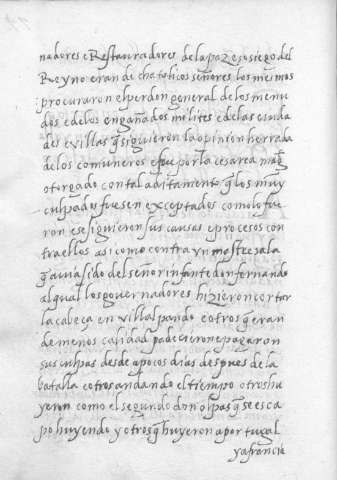 nadores e Restauradores de la paz e sosiego del
Reyno eran de chatolicos señores los mesmos
procuraron el perdon general de los menu
dos e de los engañados milites e de las ciuda
des e villas q̃ siguieron la opinion herrada
de los comuneros e fue por la cesarea mag̃
otorgado con tal aditamento q̃ los muy
culpados fuesen exceptados como lo fue
ron e se siguieron sus causas e procesos con
tra ellos asi como contra yn mostre sala
q̃ auia sido del señor infante don fernando
al qual los gouernadores hizieron cortar
la cabeça en villalpando e otros q̃ eran
de menos calidad padecieron e pagaron
sus culpas desde a pocos dias despues de la
batalla e otros andando el tiempo otros hu
yeron como el segundo don olpas q̃ se esca
po huyendo y otros q̃ huyeron a portugal
y a francia